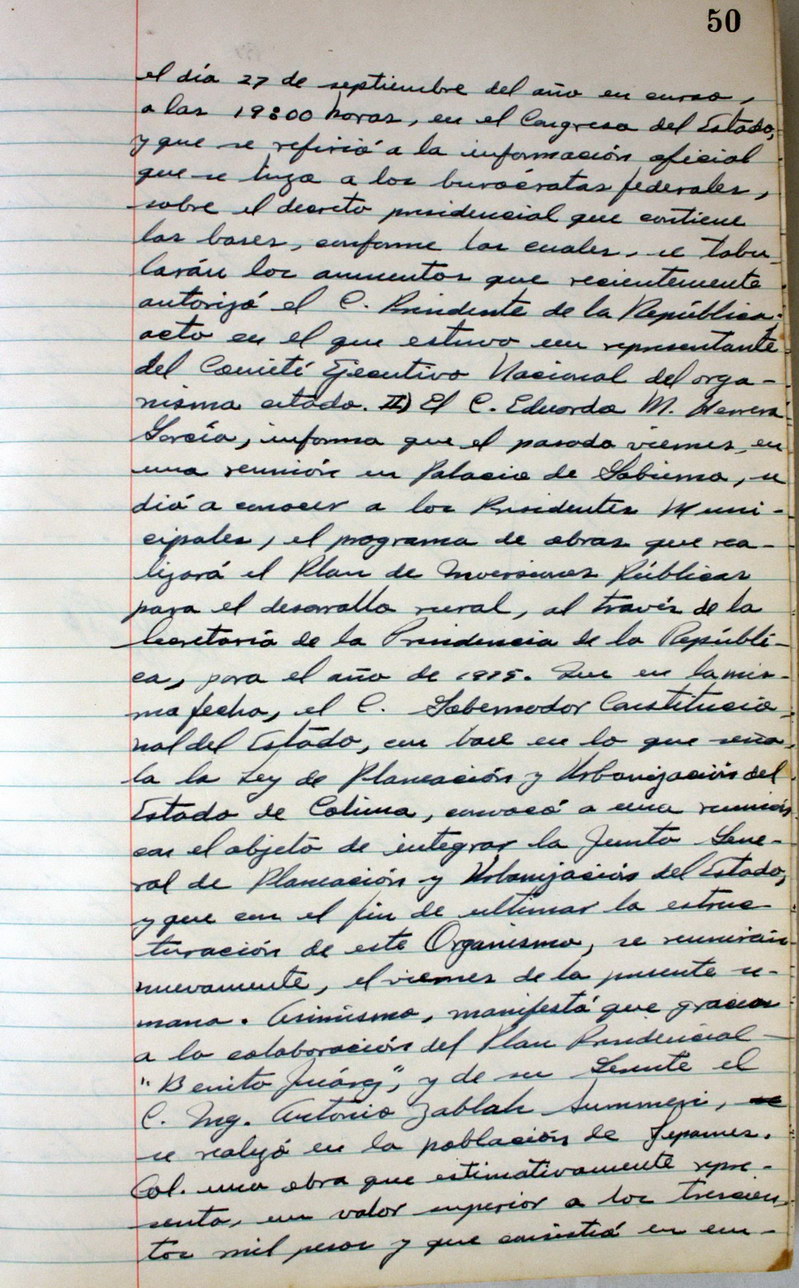 50
el día 27 de septiembre del año en curso,
a las 19:00 horas, en el Congreso del Estado,
y que se refirió a la información oficial
que se hizo a los burócratas federales,
sobre el decreto presidencial que contiene
las bases, conforme las cuales, se tabu-
larán los aumentos que recientemente
autorizó el C. Presidente de la República;
acto en el que estuvo un representante
del Comité Ejecutivo Nacional del orga-
nismo citado. II) El C. Eduardo M. Herrera
García, informa que el pasado viernes, en
una reunión en Palacio de Gobierno, se
dió a conocer a los Presidentes Muni-
cipales, el programa de obras que rea-
lizará el Plan de Inversiones Públicas
para el desarrollo rural, al través de la
Secretaría de la Presidencia de la Repúbli-
ca, para el año de 1975. Que en la mis-
ma fecha, el C. Gobernador Constitucio-
nal del Estado, con base en lo que seña-
la la Ley de Planeación y Urbanización del
Estado de Colima, convocó a una reunión
con el objeto de integrar la Junta Gene-
ral de Planeación y Urbanización del Estado,
y que con el fin de ultimar la estruc-
turación de este Organismo, se reunirán
nuevamente, el viernes de la presente se-
mana. Asimismo, manifestó que gracias
a la colaboración del Plan Presidencial
"Benito Juárez", y de su Gerente el
C. Ing. Antonio Zablah
se realizó en la población de Tepames,
Col. una obra que estimativamente repre-
senta, un valor superior a los trescien-
tos mil pesos y que consistió en